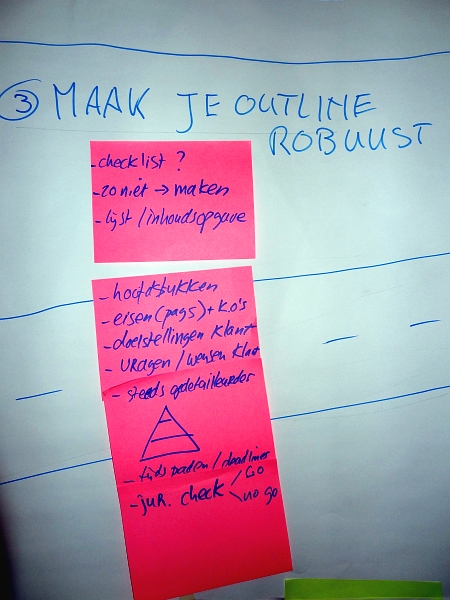 3 MAAK JE OUTLINE
ROBUUST
- checklist ?
- zo niet → maken
- lijst / inhoudsopgave
- hoofdstukken
- eisen (pags) + k.o's
- doelstellingen klant
- vragen / wensen klant
- steeds gedetailleerder
- tijdspaden / deadlines
- jur. check / Go
\ no go